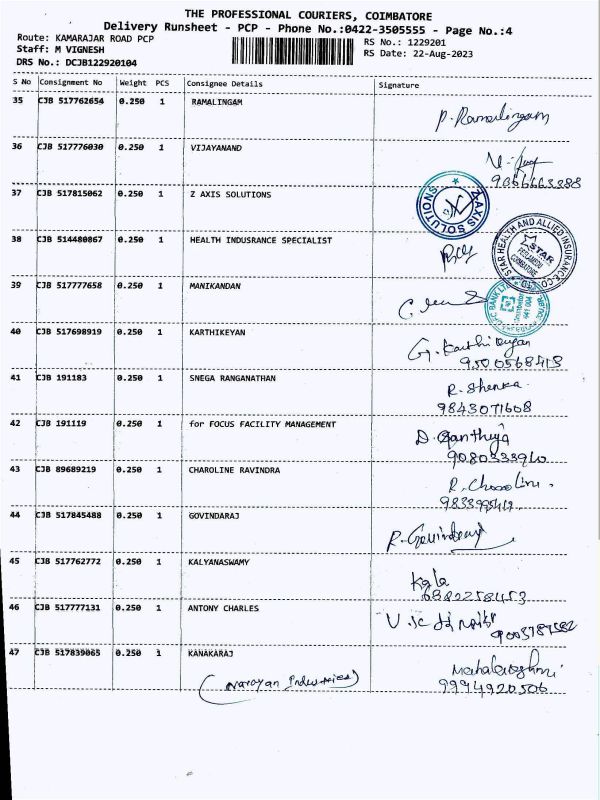 THE PROFESSIONAL COURIERS, COIMBATORE
Delivery Runsheet - PCP - Phone No.:0422-3505555 - Page No.:4
Route: KAMARAJAR ROAD PCP
RS No.: 1229201
Staff: M VIGNESH
RS Date: 22-Aug-2023
DRS No.: DCJB122920104
S No Consignment No Weight PCS Consignee Details Signature
35 CJB 517762654 0.250 1 RAMALINGAM P. Ramalingam
36 CJB 517776030 0.250 1 VIJAYANAND
9066663388
37 CJB 517815062 0.250 1 Z AXIS SOLUTIONS
Z AXIS SOLUTIONS
38 CJB 514480867 0.250 1 HEALTH INDUSRANCE SPECIALIST
STAR HEALTH AND ALLIED INSURANCE CO LTD
STAR
COIMBATORE
39 CJB 517777658 0.250 1 MANIKANDAN
40 CJB 517698919 0.250 1 KARTHIKEYAN G. Karthikeyan
9500568413
41 CJB 191183 0.250 1 SNEGA RANGANATHAN
9843071608
42 CJB 191119 0.250 1 for FOCUS FACILITY MANAGEMENT
9080333960
43 CJB 89689219 0.250 1 CHAROLINE RAVINDRA
44 CJB 517845488 0.250 1 GOVINDARAJ
45 CJB 517762772 0.250 1 KALYANASWAMY Kala
6382258453
46 CJB 517777131 0.250 1 ANTONY CHARLES
47 CJB 517839065 0.250 1 KANAKARAJ
(Narayan Industries)
9994920506